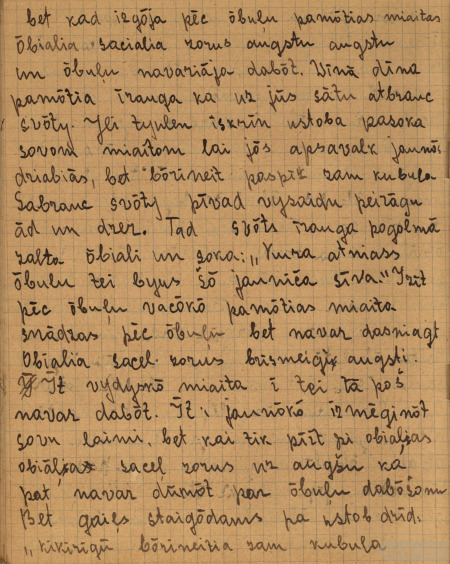 bet kad izgōja pēc ōbuļu pamōtias miaitas
ōbialia sacialia zorus augstu augstu
un ōbuļu navariāja dabōt. Vīnā dīna
pamōtia īrauga ka uz jūs sātu atbrauc
svōty. Jei tyuleņ īskrīn ustoba pasoka
sovom miaitom lai jōs apsavalk jaunōs
driabiās, bet bōrineit paspīž zam kubula
Sabrauc svōty pīvad vysaidu peirāgu
ād un dzer. Tad svōts īrauga pogolmā
zalta ōbiali un soka: „Kura atniass
ōbuļu tei byus šō jauniča sīva." Izīt
pēc ōbuļu vacōkō pamōtias miaita
snādzas pēc ōbuļu bet navar dasniagt
Obialia saceļ zorus brīsmeigi augsti.
Īt vydyskō miaita ī tei tā poš
navar dabōt. Īt jaunōkō izmēginōt
sovu laimi, bet kai tik pīīt pi obialias
obialias saceļ zorus uz augšu ka
pat navar dūmōt par ōbuļu dabōšonu
Bet gaiļs staigōdams pa ustob dzīd:
„Kikirīgū bōrineitia zam kubula